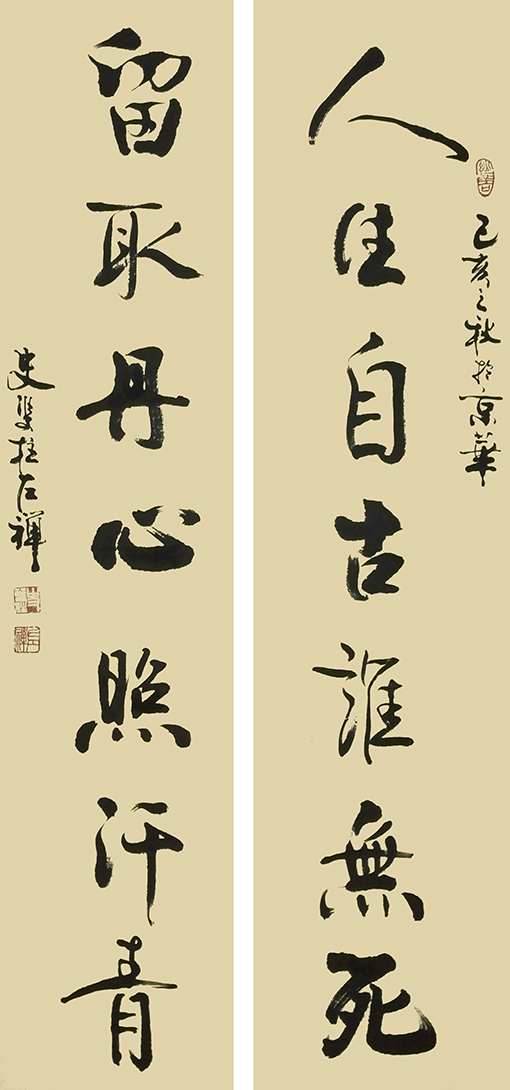 己亥之秋於京華
人生自古誰無死
留取丹心照汗青
史雙柱